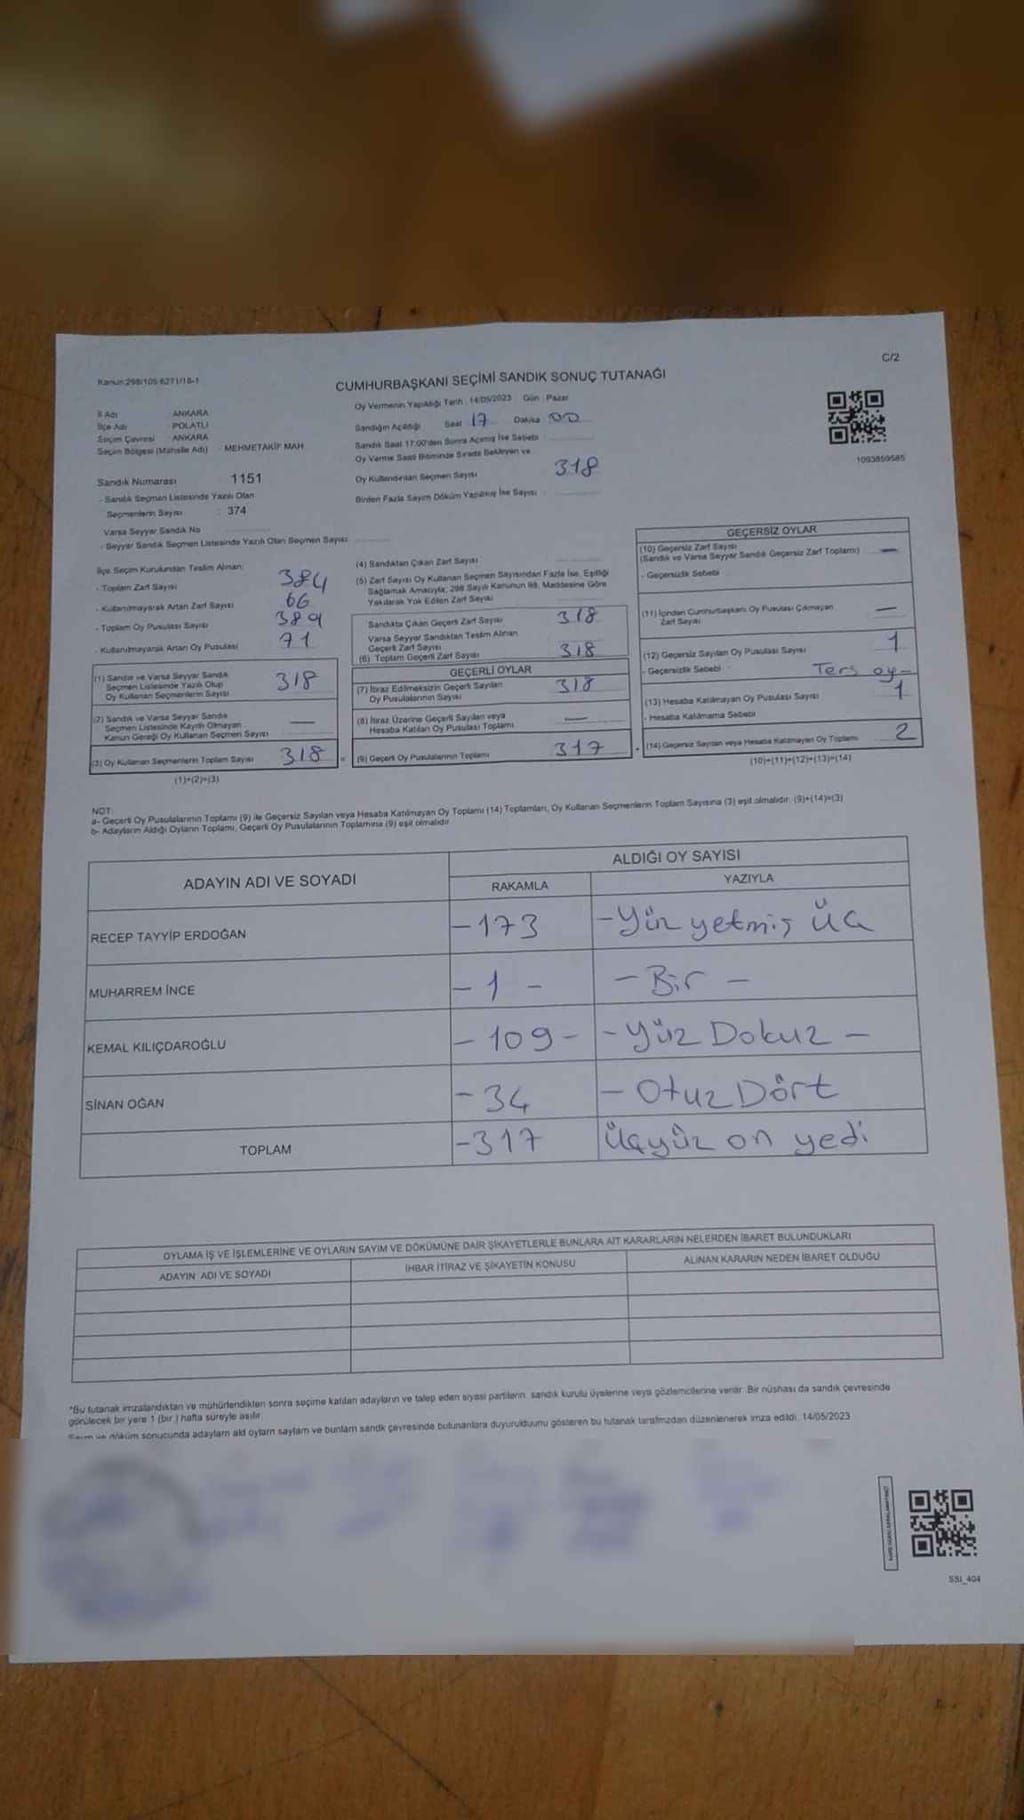 Kanun:298/105 6271/18-1
C/2
CUMHURBAŞKANI SEÇİMİ SANDIK SONUÇ TUTANAĞI
İl Adı ANKARA
İlçe Adı POLATLI
Seçim Çevresi ANKARA
Seçim Bölgesi (Mahalle Adı) MEHMETAKİF MAH
Sandık Numarası 1151
- Sandık Seçmen Listesinde Yazılı Olan
Seçmenlerin Sayısı : 374
Varsa Seyyar Sandık No
- Seyyar Sandık Seçmen Listesinde Yazılı Olan Seçmen Sayısı
Oy Vermenin Yapıldığı Tarih : 14/05/2023 Gün : Pazar
Sandığın Açıldığı Saat 17 Dakika 00
Sandık Saat 17:00'den Sonra Açılmış İse Sebebi
Oy Verme Saati Bitiminde Sırada Bekleyen ve
Oy Kullandırılan Seçmen Sayısı 318
Birden Fazla Sayım Döküm Yapılmış İse Sayısı
1093859585
İlçe Seçim Kurulundan Teslim Alınan
- Toplam Zarf Sayısı 384
- Kullanılmayarak Artan Zarf Sayısı 66
- Toplam Oy Pusulası Sayısı 389
- Kullanılmayarak Artan Oy Pusulası 71
(1) Sandık ve Varsa Seyyar Sandık
Seçmen Listesinde Yazılı Olup
Oy Kullanan Seçmenlerin Sayısı 318
(2) Sandık ve Varsa Seyyar Sandık
Seçmen Listesinde Kayıtlı Olmayan
Kanun Gereği Oy Kullanan Seçmen Sayısı —
(3) Oy Kullanan Seçmenlerin Toplam Sayısı 318
(1)+(2)=(3)
(4) Sandıktan Çıkan Zarf Sayısı
(5) Zarf Sayısı Oy Kullanan Seçmen Sayısından Fazla İse, Eşitliği
Sağlamak Amacıyla, 298 Sayılı Kanunun 98. Maddesine Göre
Yakılarak Yok Edilen Zarf Sayısı
Sandıkta Çıkan Geçerli Zarf Sayısı 318
Varsa Seyyar Sandıktan Teslim Alınan
Geçerli Zarf Sayısı
(6) Toplam Geçerli Zarf Sayısı 318
GEÇERLİ OYLAR
(7) İtiraz Edilmeksizin Geçerli Sayılan
Oy Pusulalarının Sayısı 318
(8) İtiraz Üzerine Geçerli Sayılan veya
Hesaba Katılan Oy Pusulası Toplamı —
(9) Geçerli Oy Pusulalarının Toplamı 317
GEÇERSİZ OYLAR
(10) Geçersiz Zarf Sayısı
(Sandık ve Varsa Seyyar Sandık Geçersiz Zarf Toplamı) —
- Geçersizlik Sebebi
(11) İçinden Cumhurbaşkanı Oy Pusulası Çıkmayan
Zarf Sayısı —
(12) Geçersiz Sayılan Oy Pusulası Sayısı 1
- Geçersizlik Sebebi Ters oy-
(13) Hesaba Katılmayan Oy Pusulası Sayısı 1
- Hesaba Katılmama Sebebi
(14) Geçersiz Sayılan veya Hesaba Katılmayan Oy Toplamı 2
(10)+(11)+(12)+(13)=(14)
NOT:
a- Geçerli Oy Pusulalarının Toplamı (9) ile Geçersiz Sayılan veya Hesaba Katılmayan Oy Toplamı (14) Toplamları, Oy Kullanan Seçmenlerin Toplam Sayısına (3) eşit olmalıdır. (9)+(14)=(3)
b- Adayların Aldığı Oyların Toplamı, Geçerli Oy Pusulalarının Toplamına (9) eşit olmalıdır
ADAYIN ADI VE SOYADI
ALDIĞI OY SAYISI
RAKAMLA YAZIYLA
RECEP TAYYİP ERDOĞAN -173 -Yüz yetmiş üç
MUHARREM İNCE -1- -Bir-
KEMAL KILIÇDAROĞLU -109- -Yüz Dokuz-
SİNAN OĞAN -34 -Otuz Dört
TOPLAM -317 üçyüz on yedi
OYLAMA İŞ VE İŞLEMLERİNE VE OYLARIN SAYIM VE DÖKÜMÜNE DAİR ŞİKAYETLERLE BUNLARA AİT KARARLARIN NELERDEN İBARET BULUNDUKLARI
ADAYIN ADI VE SOYADI İHBAR İTİRAZ VE ŞİKAYETİN KONUSU ALINAN KARARIN NEDEN İBARET OLDUĞU
*Bu tutanak imzalandıktan ve mühürlendikten sonra seçime katılan adayların ve talep eden siyasi partilerin, sandık kurulu üyelerine veya gözlemcilerine verilir. Bir nüshası da sandık çevresinde
görülecek bir yere 1 (bir) hafta süreyle asılır.
Sayım ve döküm sonucunda adayların ald oyların sayıları ve bunların sandk çevresinde bulunanlara duyurulduunu gösteren bu tutanak tarafımzdan düzenlenerek imza edildi. 14/05/2023
SSI_404